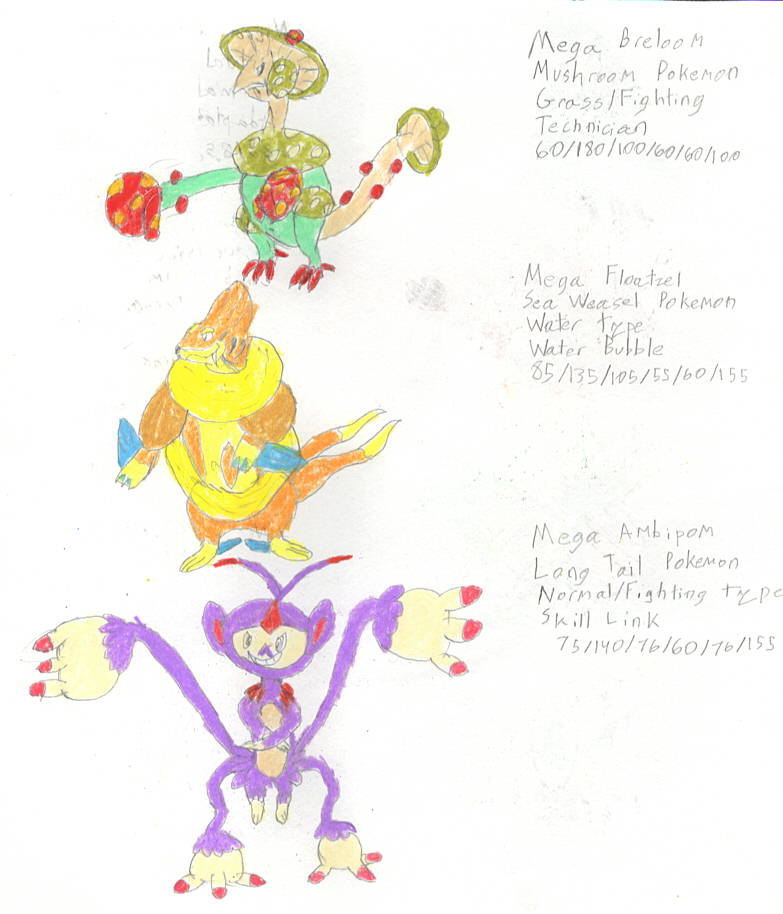 Mega Breloom
Mushroom Pokemon
Grass/Fighting
Technician
60/180/100/60/60/100
Mega Floatzel
Sea Weasel Pokemon
Water type
Water Bubble
85/135/105/55/60/155
Mega Ambipom
Long Tail Pokemon
Normal/Fighting type
Skill Link
75/140/76/60/76/155